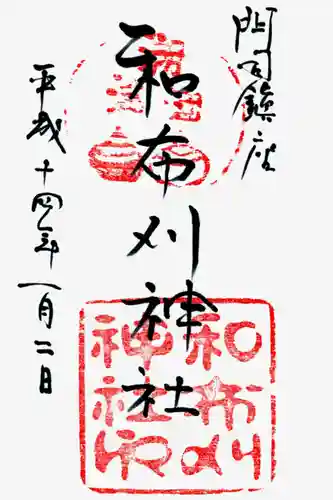 門司鎮座
和布刈神社
平成十四年一月二日
和布刈
神社印